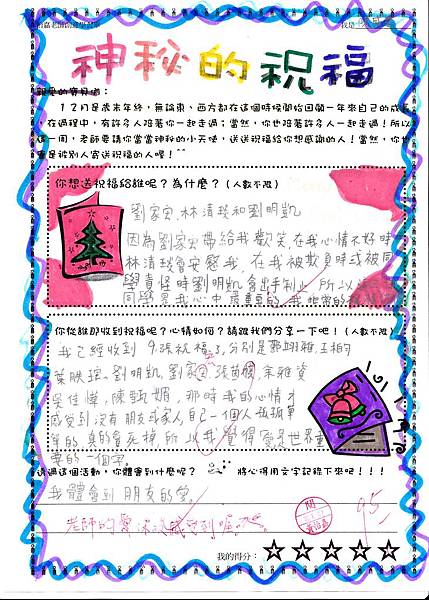 神秘的祝福
親愛的寶貝這:
12月是歲末年終，無論東、西方都在這個時候開始回顧一年來自己的成長
在過程中，有許多人陪著你一起走過；當然，你也陪著許多人一起走過！所以
這一周，老師要請你當當神秘的小天使，送送祝福給你想感謝的人！當然，你也
會是被別人寄送祝福的人喔！^^
你想送祝福給誰呢？為什麼？(人數不限)
劉家安、林清琰和劉明凱
因為劉家安帶給我歡笑，在我心情不好時
林清琰會安慰我，在我被欺負時或被同
學責怪時劉明凱會出手制止，所以
同學是我心中最重要的
你從誰那收到祝福呢？心情如何？請跟我們分享一下吧！(人數不限)
我已經收到9張祝福了，分別是郭翊雅、王栒
葉映瑄、劉明凱、劉家安、張茵、宋雅資
吳佳憶、陳甄媚，那時我的心情才
感受到沒有朋友或家人，自己一個人孤孤單
單的，真的會死掉，所以我覺得愛是世界重
要的一個字。
透過這個活動，你體會到什麼呢？ 將心得用文字記錄下來吧！！！
我體會到朋友的愛。
老師的愛深深感受到喔
閱
95
我的得分：☆☆☆☆☆